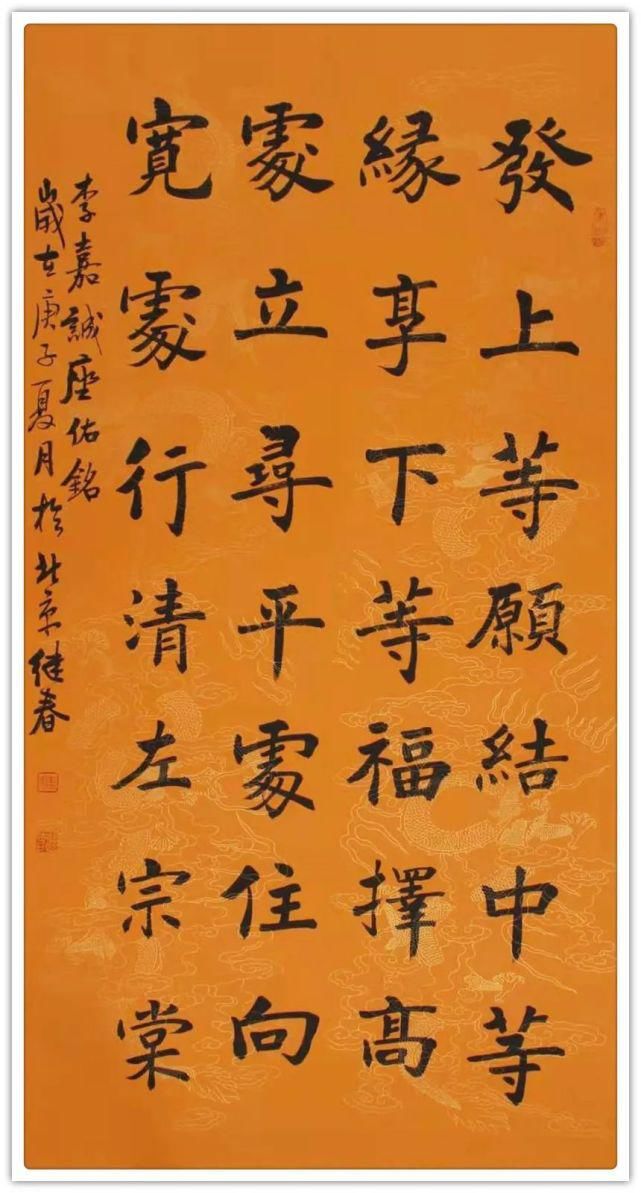 發上等願結中等
緣享下等福擇高
處立尋平處住向
寬處行清左宗棠
李嘉誠座佑銘
歲在庚子夏月於北京继春